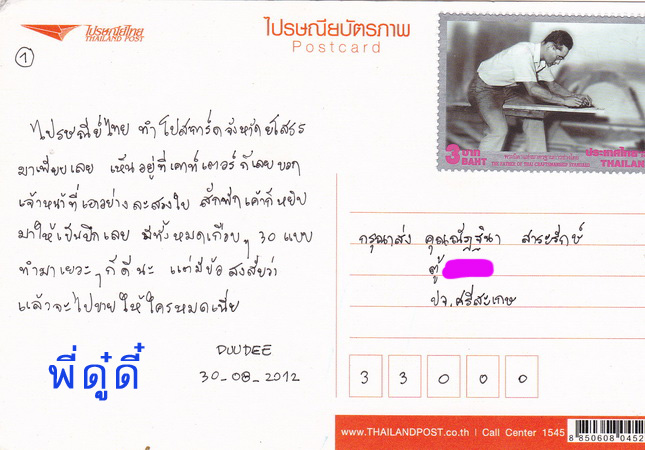 ไปรษณีย์ไทย
THAILAND POST
ไปรษณียบัตรภาพ
Postcard
1
3 บาท
BAHT
ประเทศไทย
THAILAND
ไปรษณีย์ไทย ทำโปสการ์ดจังหวัดยโสธร
มาเพียบเลย เห็นอยู่ที่เคาน์เตอร์ก็เลยบอก
เจ้าหน้าที่เอาอย่างละสองใบ สักพักเค้าก็หยิบ
มาให้เป็นปึกเลย มีทั้งหมดเกือบๆ 30 แบบ
ทำมาเยอะๆก็ดีนะ แต่มีข้อสงสัยว่า
แล้วจะไปขายให้ใครหมดเนี่ย
พี่ดู๋ดี๋
DUUDEE
30-08-2012
กรุณาส่ง คุณณัฏฐินา สาระรักษ์
ตู้
ปจ.ศรีสะเกษ
3 3 0 0 0
www.THAILANDPOST.co.th | Call Center 1545
8 850608 0452